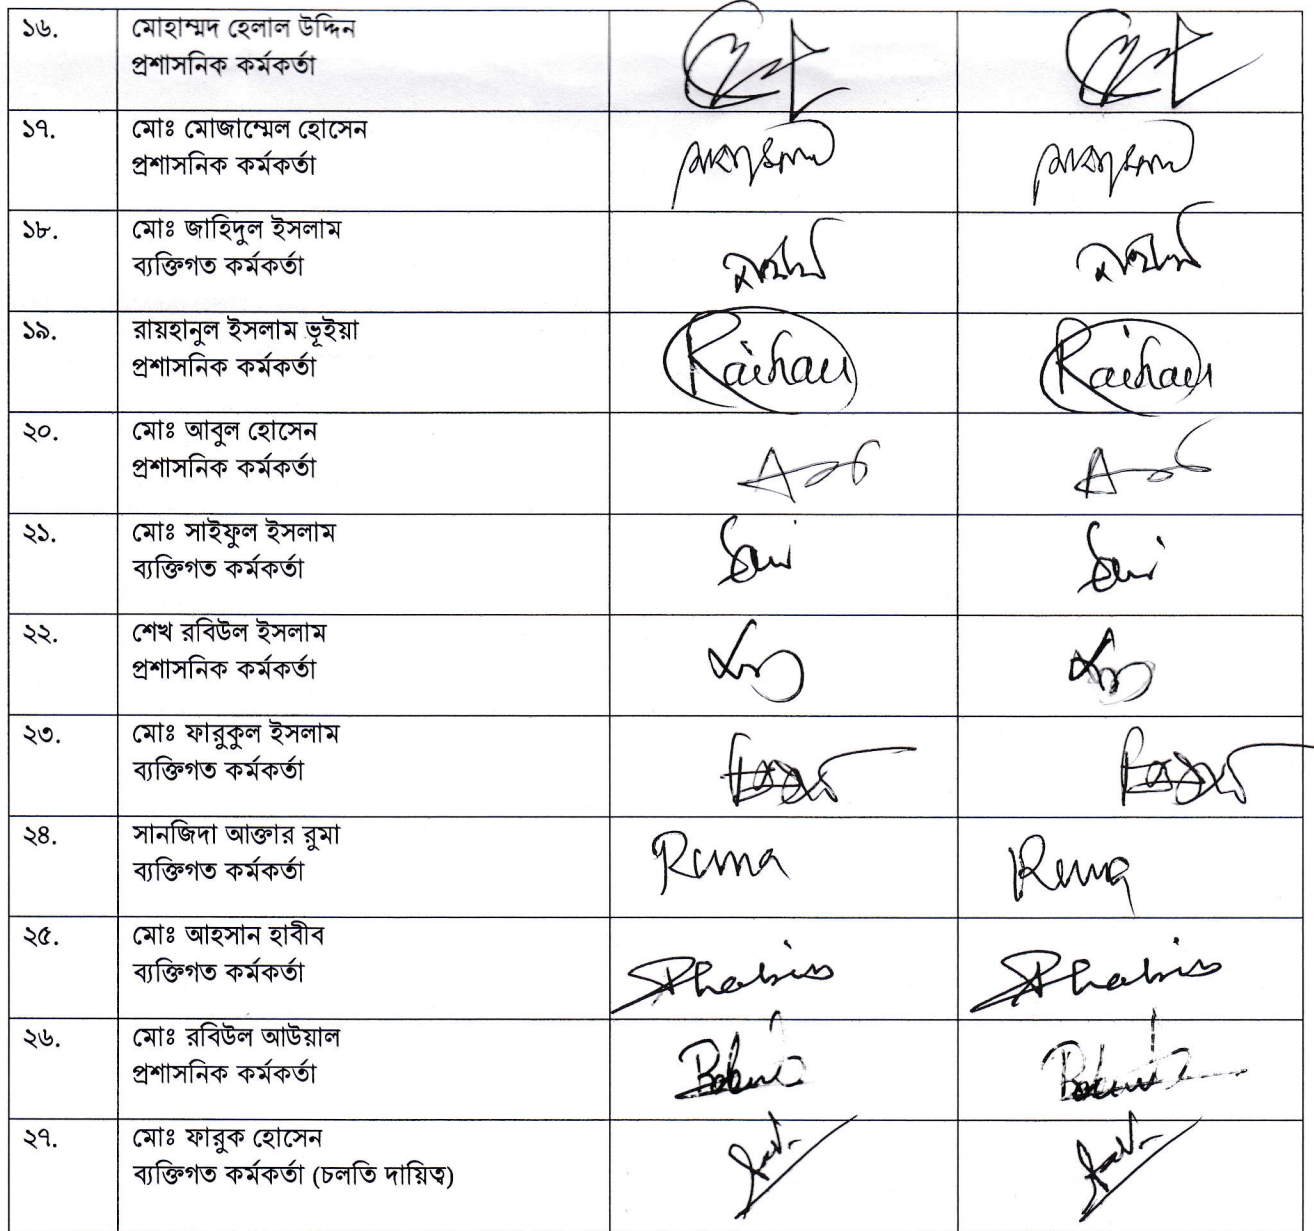 ১৬. মোহাম্মদ হেলাল উদ্দিন
প্রশাসনিক কর্মকর্তা
১৭. মোঃ মোজাম্মেল হোসেন
প্রশাসনিক কর্মকর্তা
১৮. মোঃ জাহিদুল ইসলাম
ব্যক্তিগত কর্মকর্তা
১৯. রায়হানুল ইসলাম ভূইয়া
প্রশাসনিক কর্মকর্তা
Raihan Raihan
২০. মোঃ আবুল হোসেন
প্রশাসনিক কর্মকর্তা
২১. মোঃ সাইফুল ইসলাম
ব্যক্তিগত কর্মকর্তা
২২. শেখ রবিউল ইসলাম
প্রশাসনিক কর্মকর্তা
২৩. মোঃ ফারুকুল ইসলাম
ব্যক্তিগত কর্মকর্তা
২৪. সানজিদা আক্তার রুমা
ব্যক্তিগত কর্মকর্তা
Ruma Ruma
২৫. মোঃ আহসান হাবীব
ব্যক্তিগত কর্মকর্তা
২৬. মোঃ রবিউল আউয়াল
প্রশাসনিক কর্মকর্তা
২৭. মোঃ ফারুক হোসেন
ব্যক্তিগত কর্মকর্তা (চলতি দায়িত্ব)